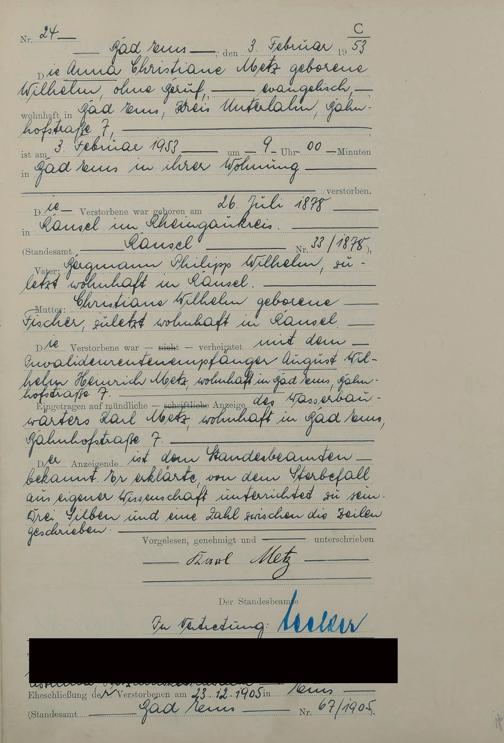 C
Nr. 24
Bad Ems, den 3. Februar 1953
Die Anna Christiane Metz geborene
Wilhelm, ohne Beruf, evangelisch,
wohnhaft in Bad Ems, Kreis Unterlahn, Bahn-
hofstraße 7,
ist am 3. Februar 1953 um 9 Uhr 00 Minuten
in Bad Ems in ihrer Wohnung
verstorben.
Die Verstorbene war geboren am 26. Juli 1878
in Ransel im Rheingaukreis.
(Standesamt Ransel Nr. 33/1878),
Vater: Bergmann Philipp Wilhelm, zu-
letzt wohnhaft in Ransel.
Mutter: Christiane Wilhelm geborene
Fischer, zuletzt wohnhaft in Ransel.
Die Verstorbene war – nicht – verheiratet mit dem
Invalidenrentenempfänger August Wil-
helm Heinrich Metz, wohnhaft in Bad Ems, Bahn-
hofstraße 7.
Eingetragen auf mündliche – schriftliche Anzeige des Wasserbau-
wärters Karl Metz, wohnhaft in Bad Ems,
Bahnhofstraße 7.
Der Anzeigende ist dem Standesbeamten
bekannt. Er erklärte, von dem Sterbefall
aus eigener Wissenschaft unterrichtet zu sein.
Drei Silben und eine Zahl zwischen die Zeilen
geschrieben.
Vorgelesen, genehmigt und unterschrieben
Karl Metz
Der Standesbeamte
In Vertretung:
Eheschließung der Verstorbenen am 23.12.1905 in Ems
(Standesamt Bad Ems Nr. 67/1905.